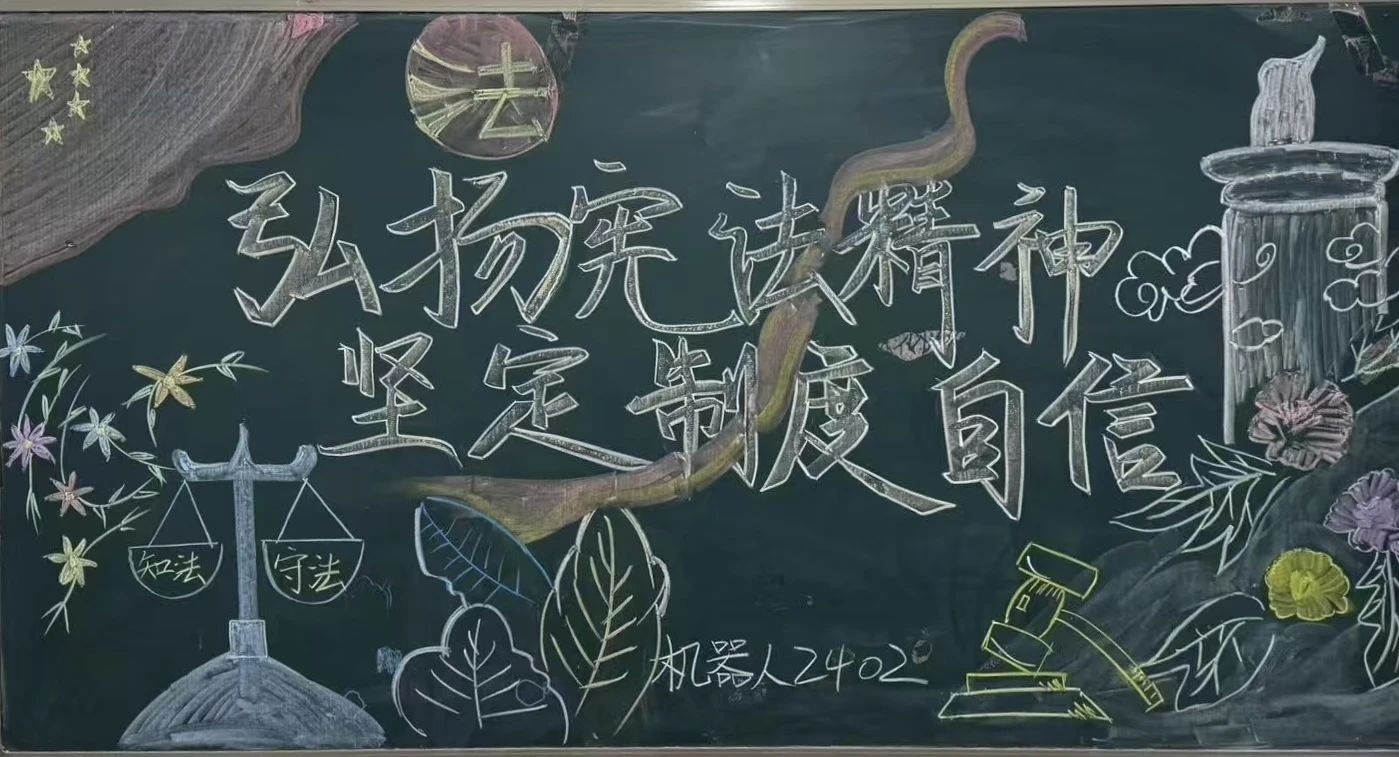 法
弘扬宪法精神
坚定制度自信
知法
守法
机器人2402